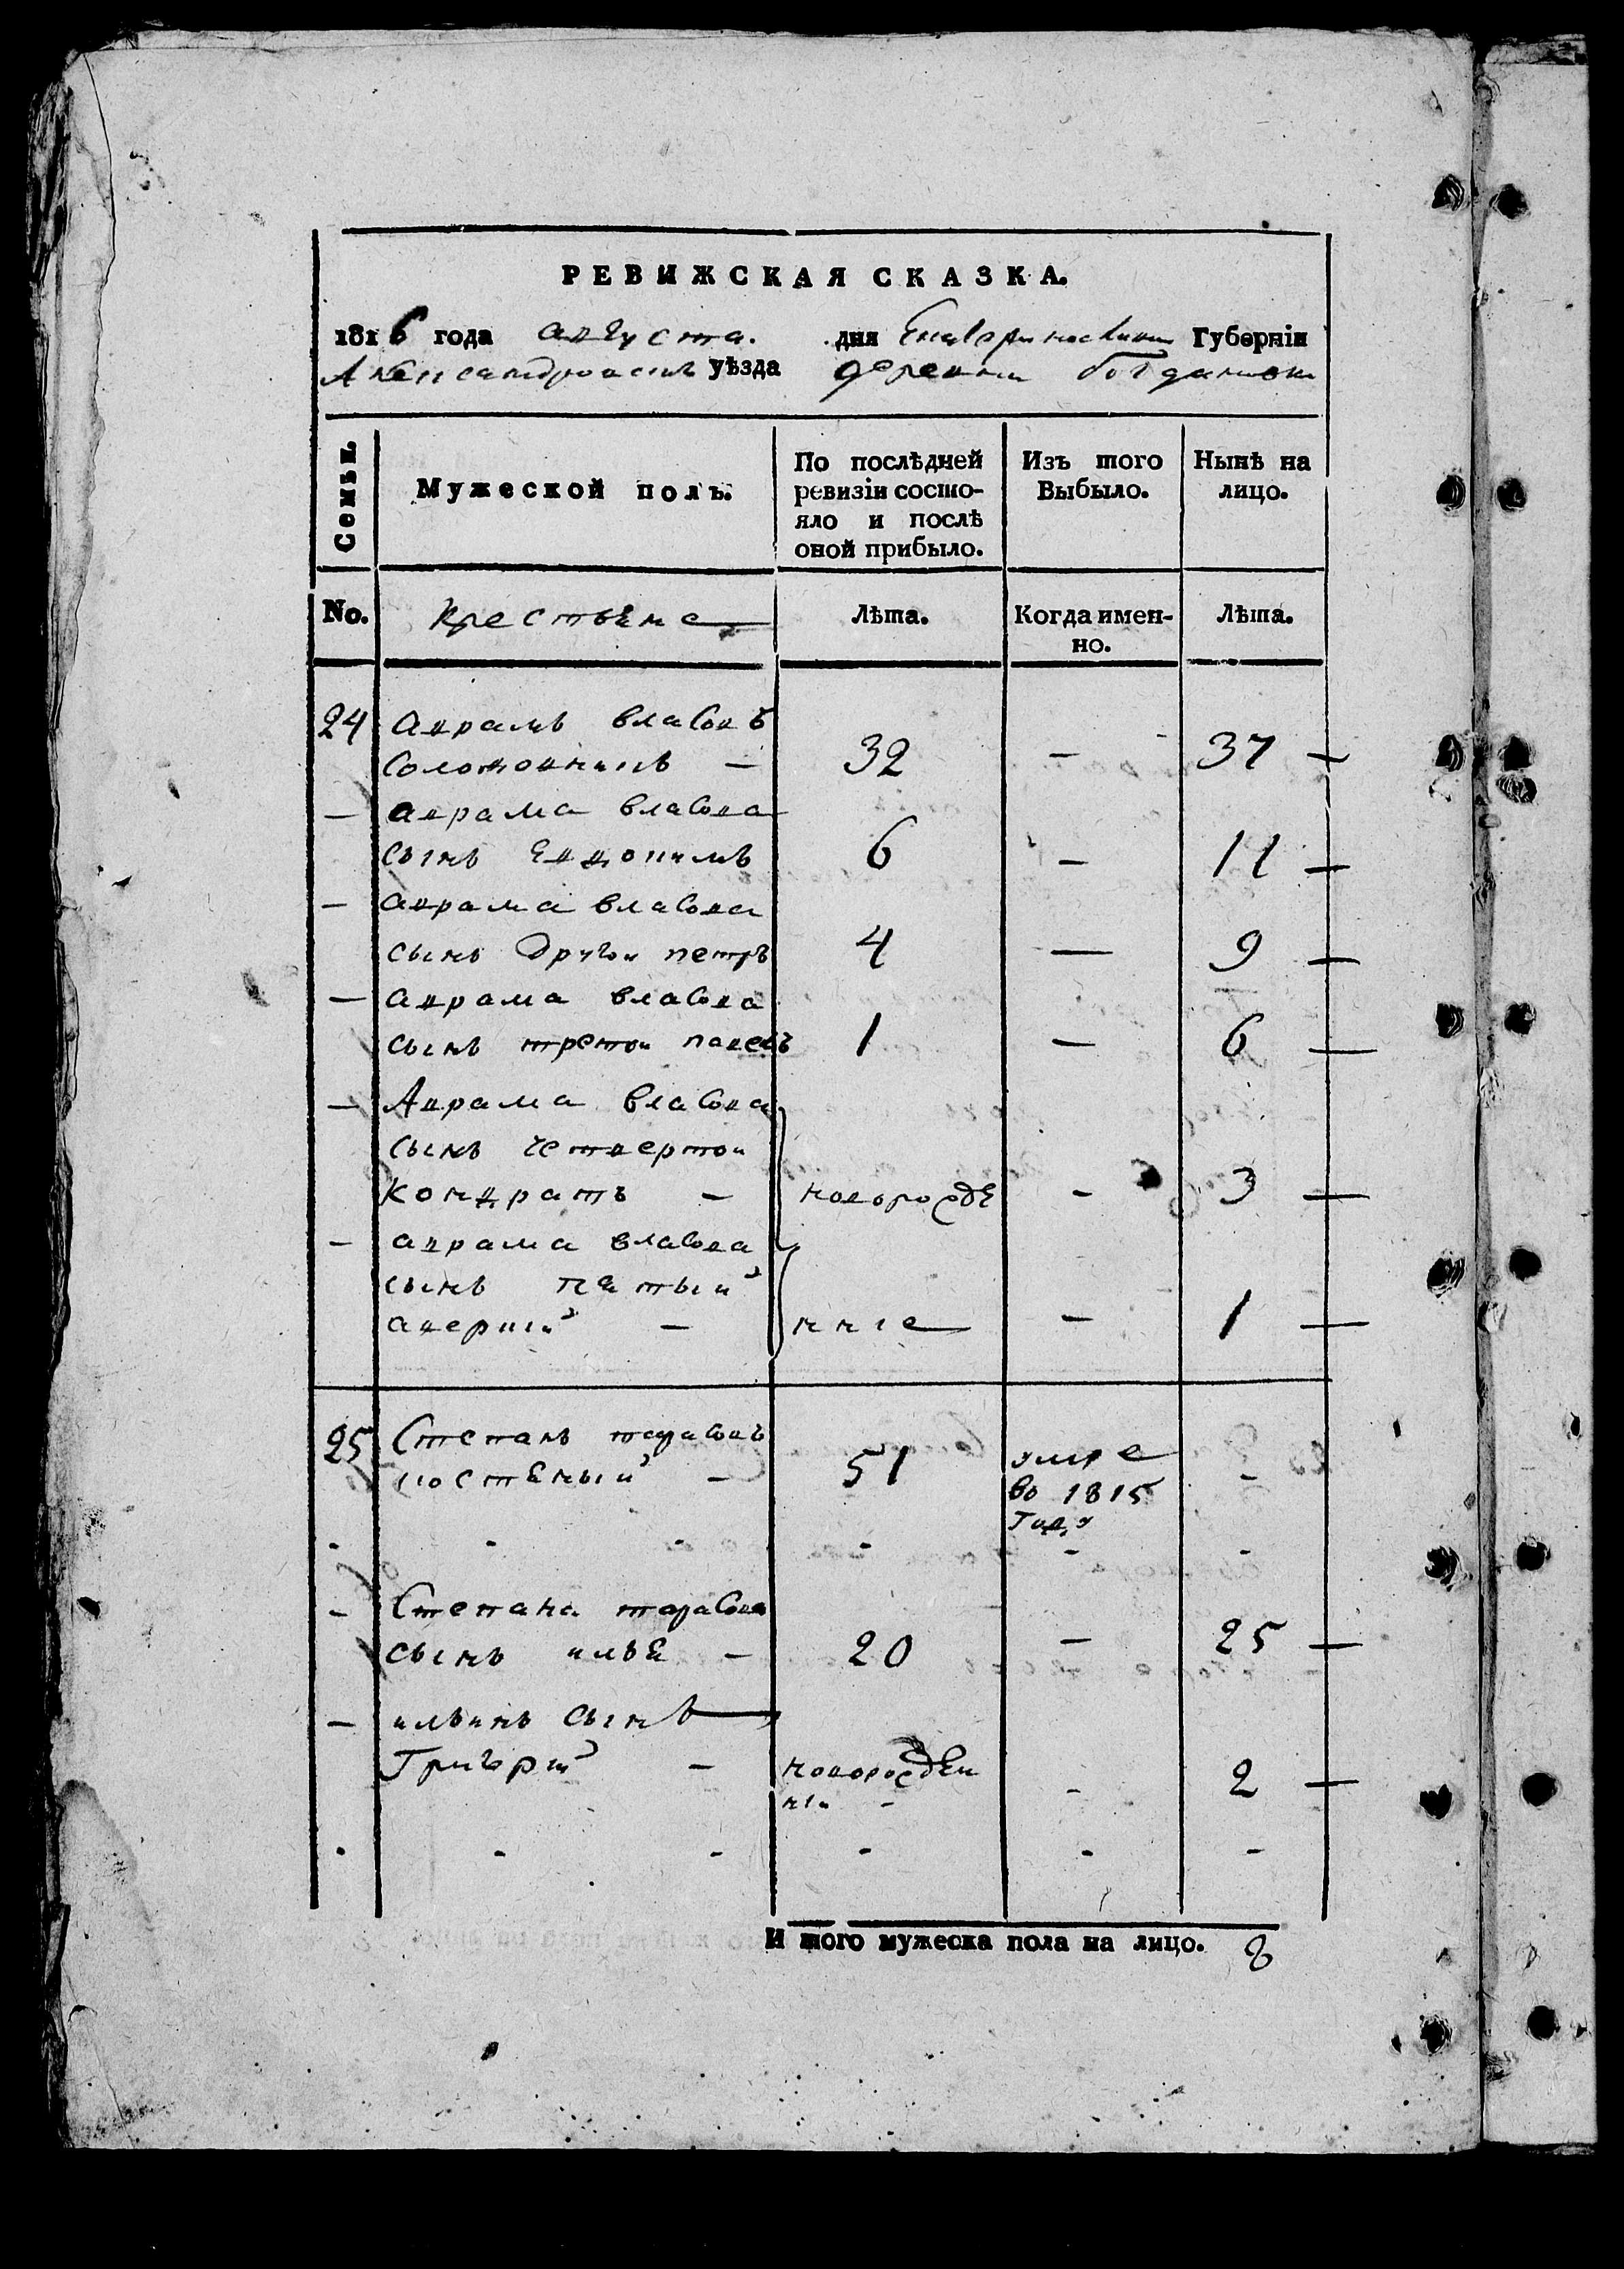 РЕВИЖСКАЯ СКАЗКА.
1816 года августа. дня Екатеринославской Губерніи
Александровского уѣзда деревни богдановки
Семьи.
Мужеской полъ.
По послѣдней ревизіи состояло и послѣ оной прибыло.
Изъ того Выбыло.
Ныне на лицо.
No. крестьяне Лѣта. Когда именно. Лѣта.
24 аврамъ власовъ
32 - 37
- аврама власова
сынъ 6 - 11
- аврама власова
сынъ другои петръ 4 — 9
- аврама власова
сынъ третои павелъ 1 — 6
- Аврама власова
сынъ четвертои
кондратъ - новорожде - 3
- аврама власова
сынъ пятый
аверкий - нние - 1
25 Степанъ тарасовъ
51 умре -
во 1815
году
- Степана тарасова
сынъ илья - 20 - 25
- ильинъ сынъ
Григорий - новорожден - 2
ніи -
И того мужеска пола на лицо. 8